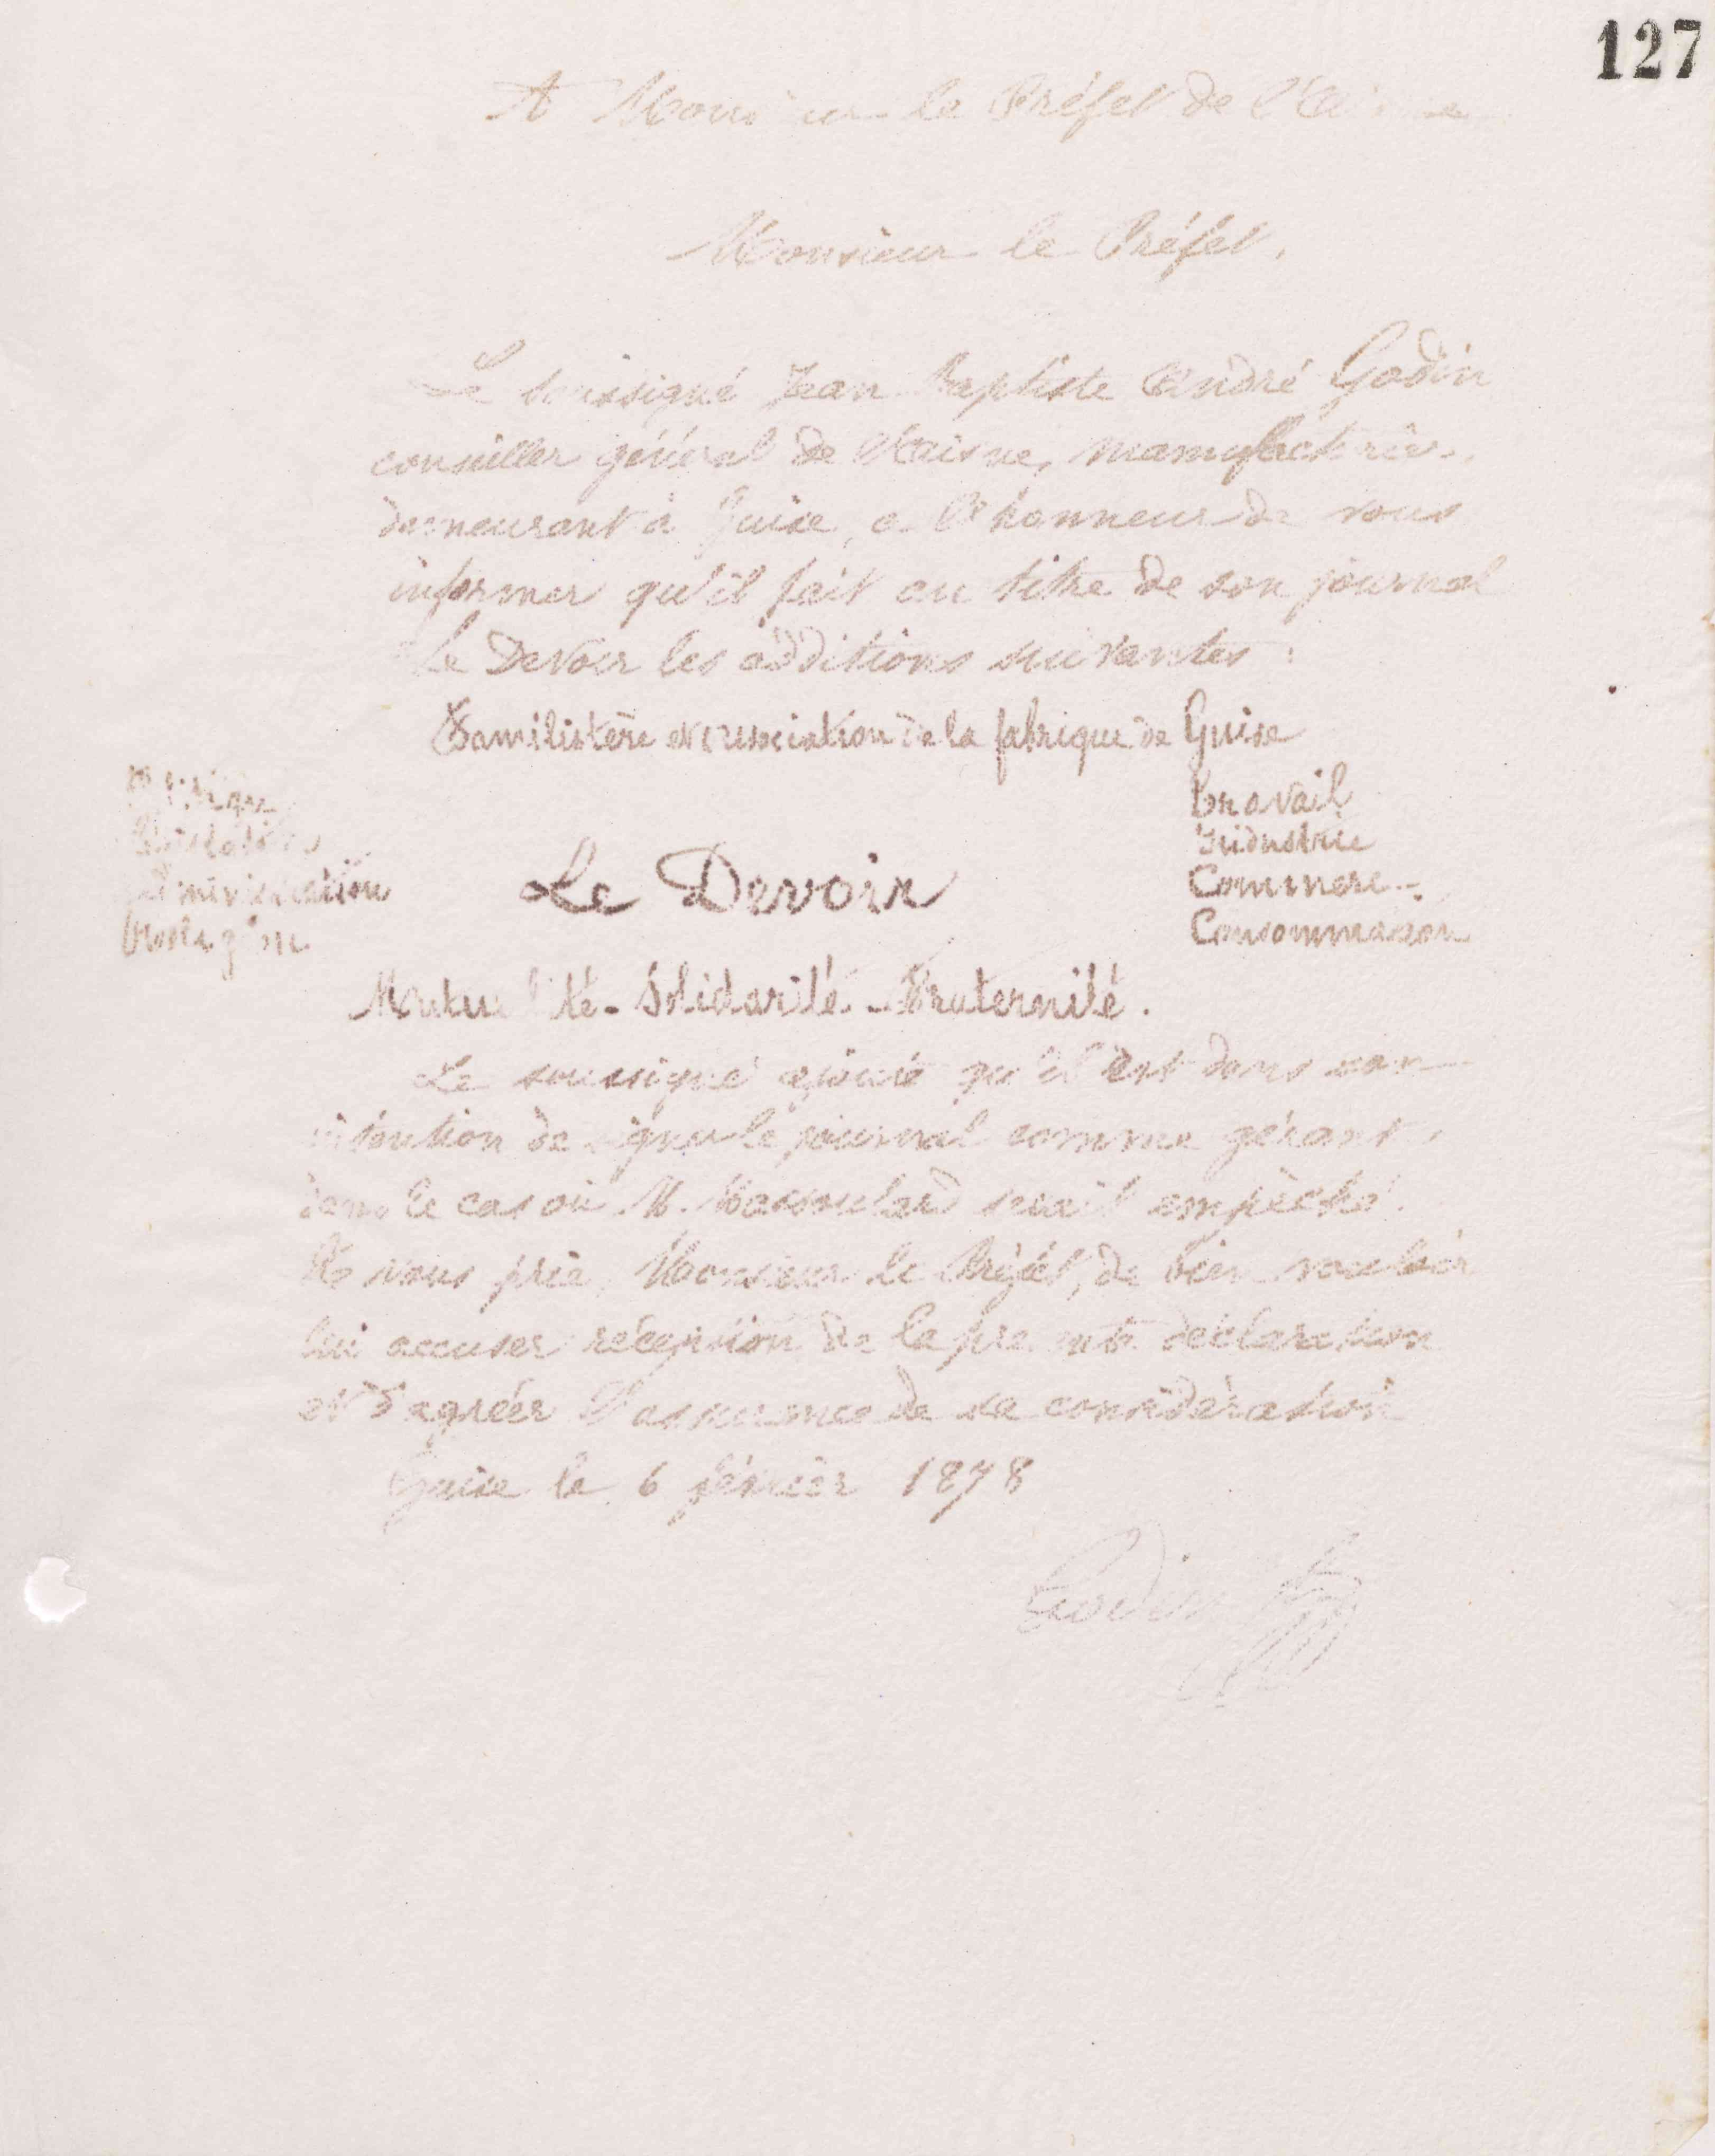 127
A Monsieur le Préfet de l'Aisne
Monsieur le Préfet,
Le soussigné Jean Baptiste André Godin
conseiller général de l'Aisne, manufacturier,
demeurant à Guise, a l'honneur de vous
informer qu'il fait au titre de son journal
Le Devoir les additions suivantes :
Familistère et association de la fabrique de Guise
Politique
Législation
Administration
Religion
Le Devoir
Travail
Industrie
Commerce
Consommation
Mutualité - Solidarité - Fraternité.
Le soussigné ajoute qu'il est dans son
intention de signer le journal comme gérant,
dans le cas où M. Massoulard serait empêché.
Il vous prie, Monsieur le Préfet, de bien vouloir
lui accuser réception de la présente déclaration
et d'agréer l'assurance de sa considération
Guise le 6 février 1878
Godin